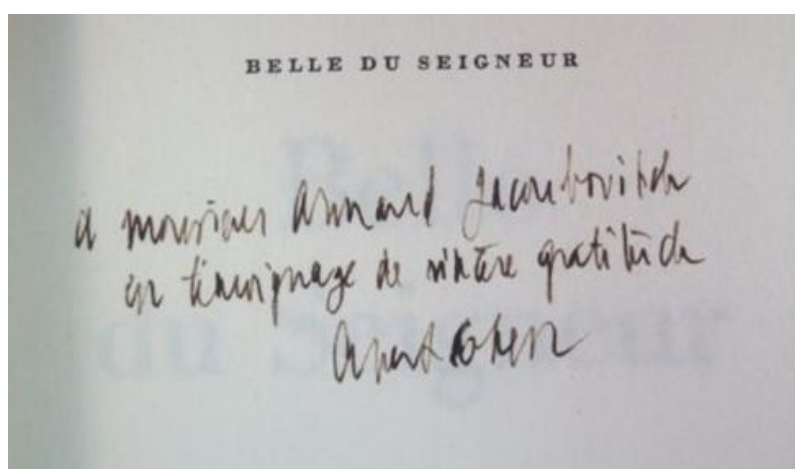 BELLE DU SEIGNEUR
à monsieur Armand Jacoubovitch
en témoignage de sincère gratitude
Albert Cohen